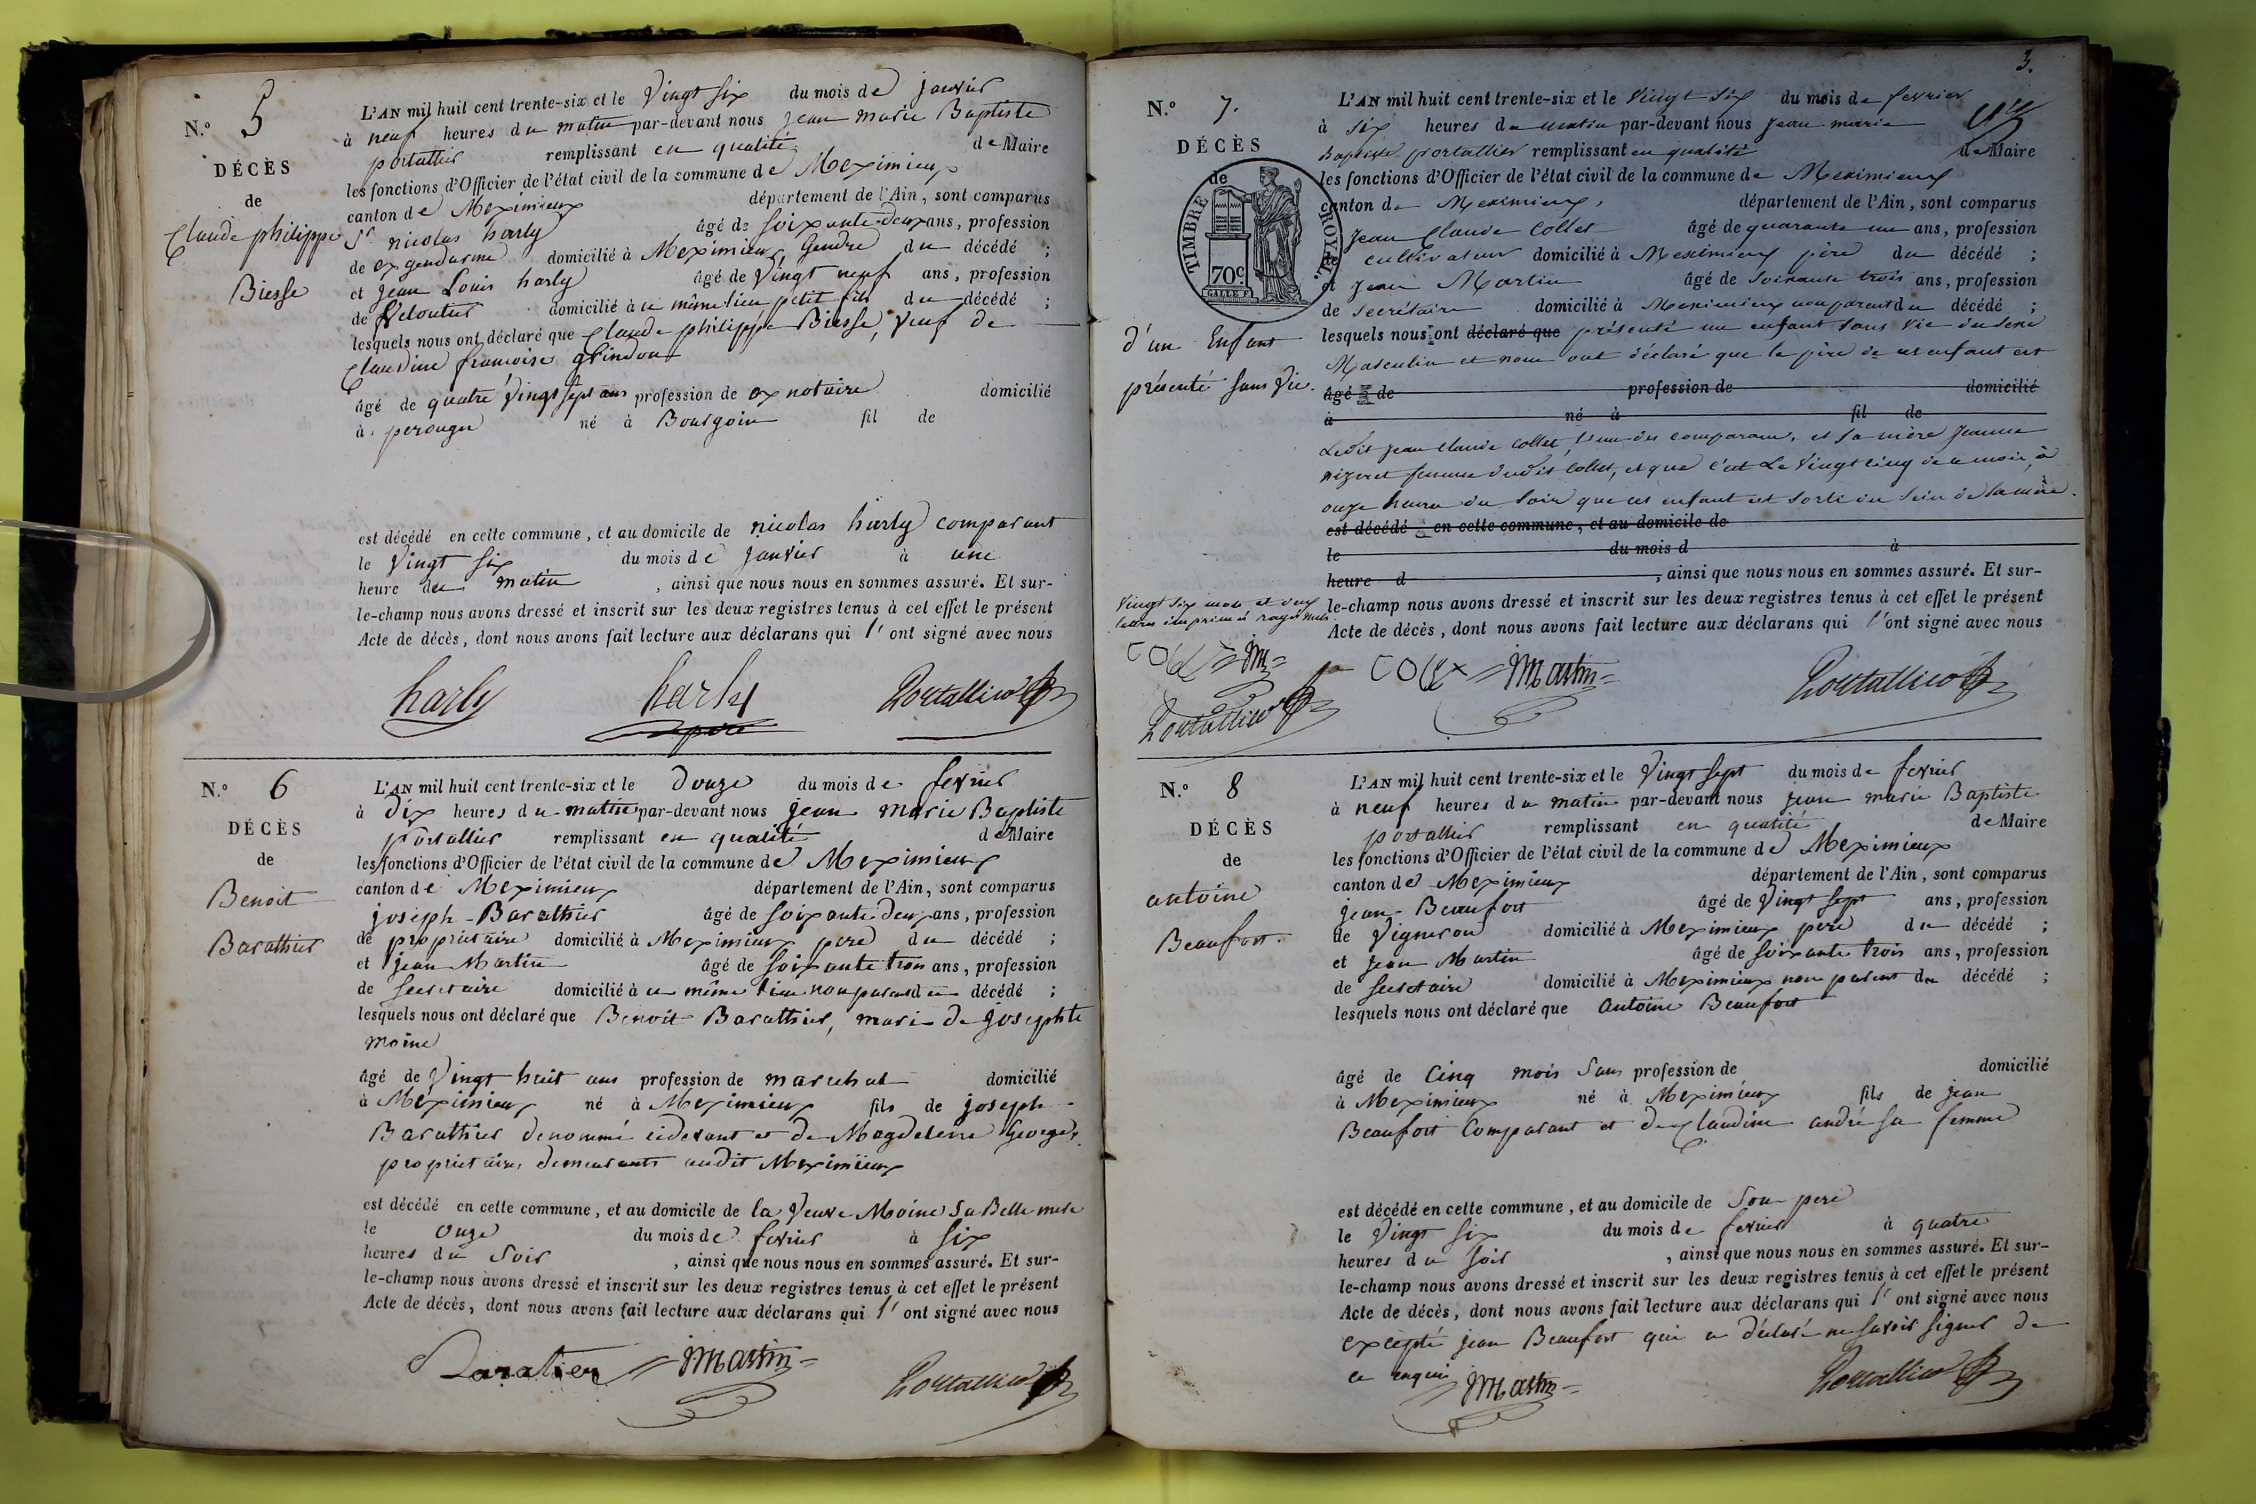 N.º 5
DÉCÈS
de
Claude philippe
Biesse
L'AN mil huit cent trente-six et le Vingt six du mois de janvier
à neuf heures du matin par-devant nous jean marie Baptiste
portallier remplissant en qualité de Maire
les fonctions d'Officier de l'état civil de la commune de Meximieux
canton de Meximieux département de l'Ain, sont comparus
Sr nicolas harly âgé de soixante deux ans, profession
de ex gendarme domicilié à Meximieux, Gendre du décédé ;
et jean Louis harly âgé de Vingt neuf ans, profession
de domicilié à ce même lieu petit fils du décédé ;
lesquels nous ont déclaré que Claude philippe Biesse, veuf de
Claudine francoise
âgé de quatre Vingt sept ans profession de ex notaire domicilié
à perouges né à Bourgoin fil de
est décédé en cette commune, et au domicile de nicolas harly comparant
le Vingt six du mois de janvier à une
heure du matin, ainsi que nous nous en sommes assuré. Et sur-
le-champ nous avons dressé et inscrit sur les deux registres tenus à cet effet le présent
Acte de décès, dont nous avons fait lecture aux déclarans qui l' ont signé avec nous
harly harly père Portallier
N.º 6
DÉCÈS
de
Benoit
Barathier
L'AN mil huit cent trente-six et le douze du mois de fevrier
à dix heures du matin par-devant nous jean marie Baptiste
portallier remplissant en qualité de Maire
les fonctions d'Officier de l'état civil de la commune de Meximieux
canton de Meximieux département de l'Ain, sont comparus
joseph Barathier âgé de soixante deux ans, profession
de proprietaire domicilié à Meximieux pere du décédé ;
et jean Martin âgé de soixante trois ans, profession
de secretaire domicilié à ce même lieu non parent du décédé ;
lesquels nous ont déclaré que Benoit Barathier, mari de josephte
moine
âgé de Vingt huit ans profession de marechal domicilié
à Meximieux né à Meximieux fils de joseph
Barathier denommé cidevant et de Magdeleine George
proprietaires demeurants audit Meximieux
est décédé en cette commune, et au domicile de la Veuve Moine sa Belle mere
le onze du mois de fevrier à six
heures du soir, ainsi que nous nous en sommes assuré. Et sur-
le-champ nous avons dressé et inscrit sur les deux registres tenus à cet effet le présent
Acte de décès, dont nous avons fait lecture aux déclarans qui l' ont signé avec nous
Baratier jMartin Portallier
3.
N.º 7.
DÉCÈS
de
TIMBRE ROYAL.
70c.
d'un Enfant
présenté sans Vie.
L'AN mil huit cent trente-six et le Vingt six du mois de fevrier
à six heures du matin par-devant nous jean marie
Baptiste portallier remplissant en qualité de Maire
les fonctions d'Officier de l'état civil de la commune de Meximieux
canton de Meximieux, département de l'Ain, sont comparus
jean Claude Collet âgé de quarante un ans, profession
cultivateur domicilié à Meximieux père du décédé ;
et jean Martin âgé de soixante trois ans, profession
de secrétaire domicilié à Meximieux non parent du décédé ;
lesquels nous ont déclaré que présenté un enfant sans vie du sexe
Masculin et nous ont déclaré que le père de cet enfant est
âgé de profession de domicilié
à né à fil de
Ledit jean Claude Collet, l'un des comparans, et sa mère jeanne
femme dudit Collet, et que c'est le Vingt cinq de ce mois, à
onze heures du soir que cet enfant est sorti du sein de sa mère.
est décédé en cette commune, et au domicile de
le du mois d à
heure d , ainsi que nous nous en sommes assuré. Et sur-
le-champ nous avons dressé et inscrit sur les deux registres tenus à cet effet le présent
Acte de décès, dont nous avons fait lecture aux déclarans qui l' ont signé avec nous
Vingt six mots et deux
lettres imprimés rayés nuls
Collet jM
Portallier
Collet jMartin Portallier
N.º 8
DÉCÈS
de
antoine
Beaufort.
L'AN mil huit cent trente-six et le Vingt sept du mois de fevrier
à neuf heures du matin par-devant nous jean marie Baptiste
portallier remplissant en qualité de Maire
les fonctions d'Officier de l'état civil de la commune de Meximieux
canton de Meximieux département de l'Ain, sont comparus
jean Beaufort âgé de Vingt sept ans, profession
de Vigneron domicilié à Meximieux pere du décédé ;
et jean Martin âgé de soixante trois ans, profession
de secretaire domicilié à Meximieux non parent du décédé ;
lesquels nous ont déclaré que Antoine Beaufort
âgé de Cinq mois sans profession de domicilié
à Meximieux né à Meximieux fils de jean
Beaufort Comparant et de Claudine andré sa femme
est décédé en cette commune, et au domicile de son pere
le Vingt six du mois de fevrier à quatre
heures du soir, ainsi que nous nous en sommes assuré. Et sur-
le-champ nous avons dressé et inscrit sur les deux registres tenus à cet effet le présent
Acte de décès, dont nous avons fait lecture aux déclarans qui l' ont signé avec nous
excepté jean Beaufort qui a déclaré ne savoir signer de
ce enquis jMartin Portallier